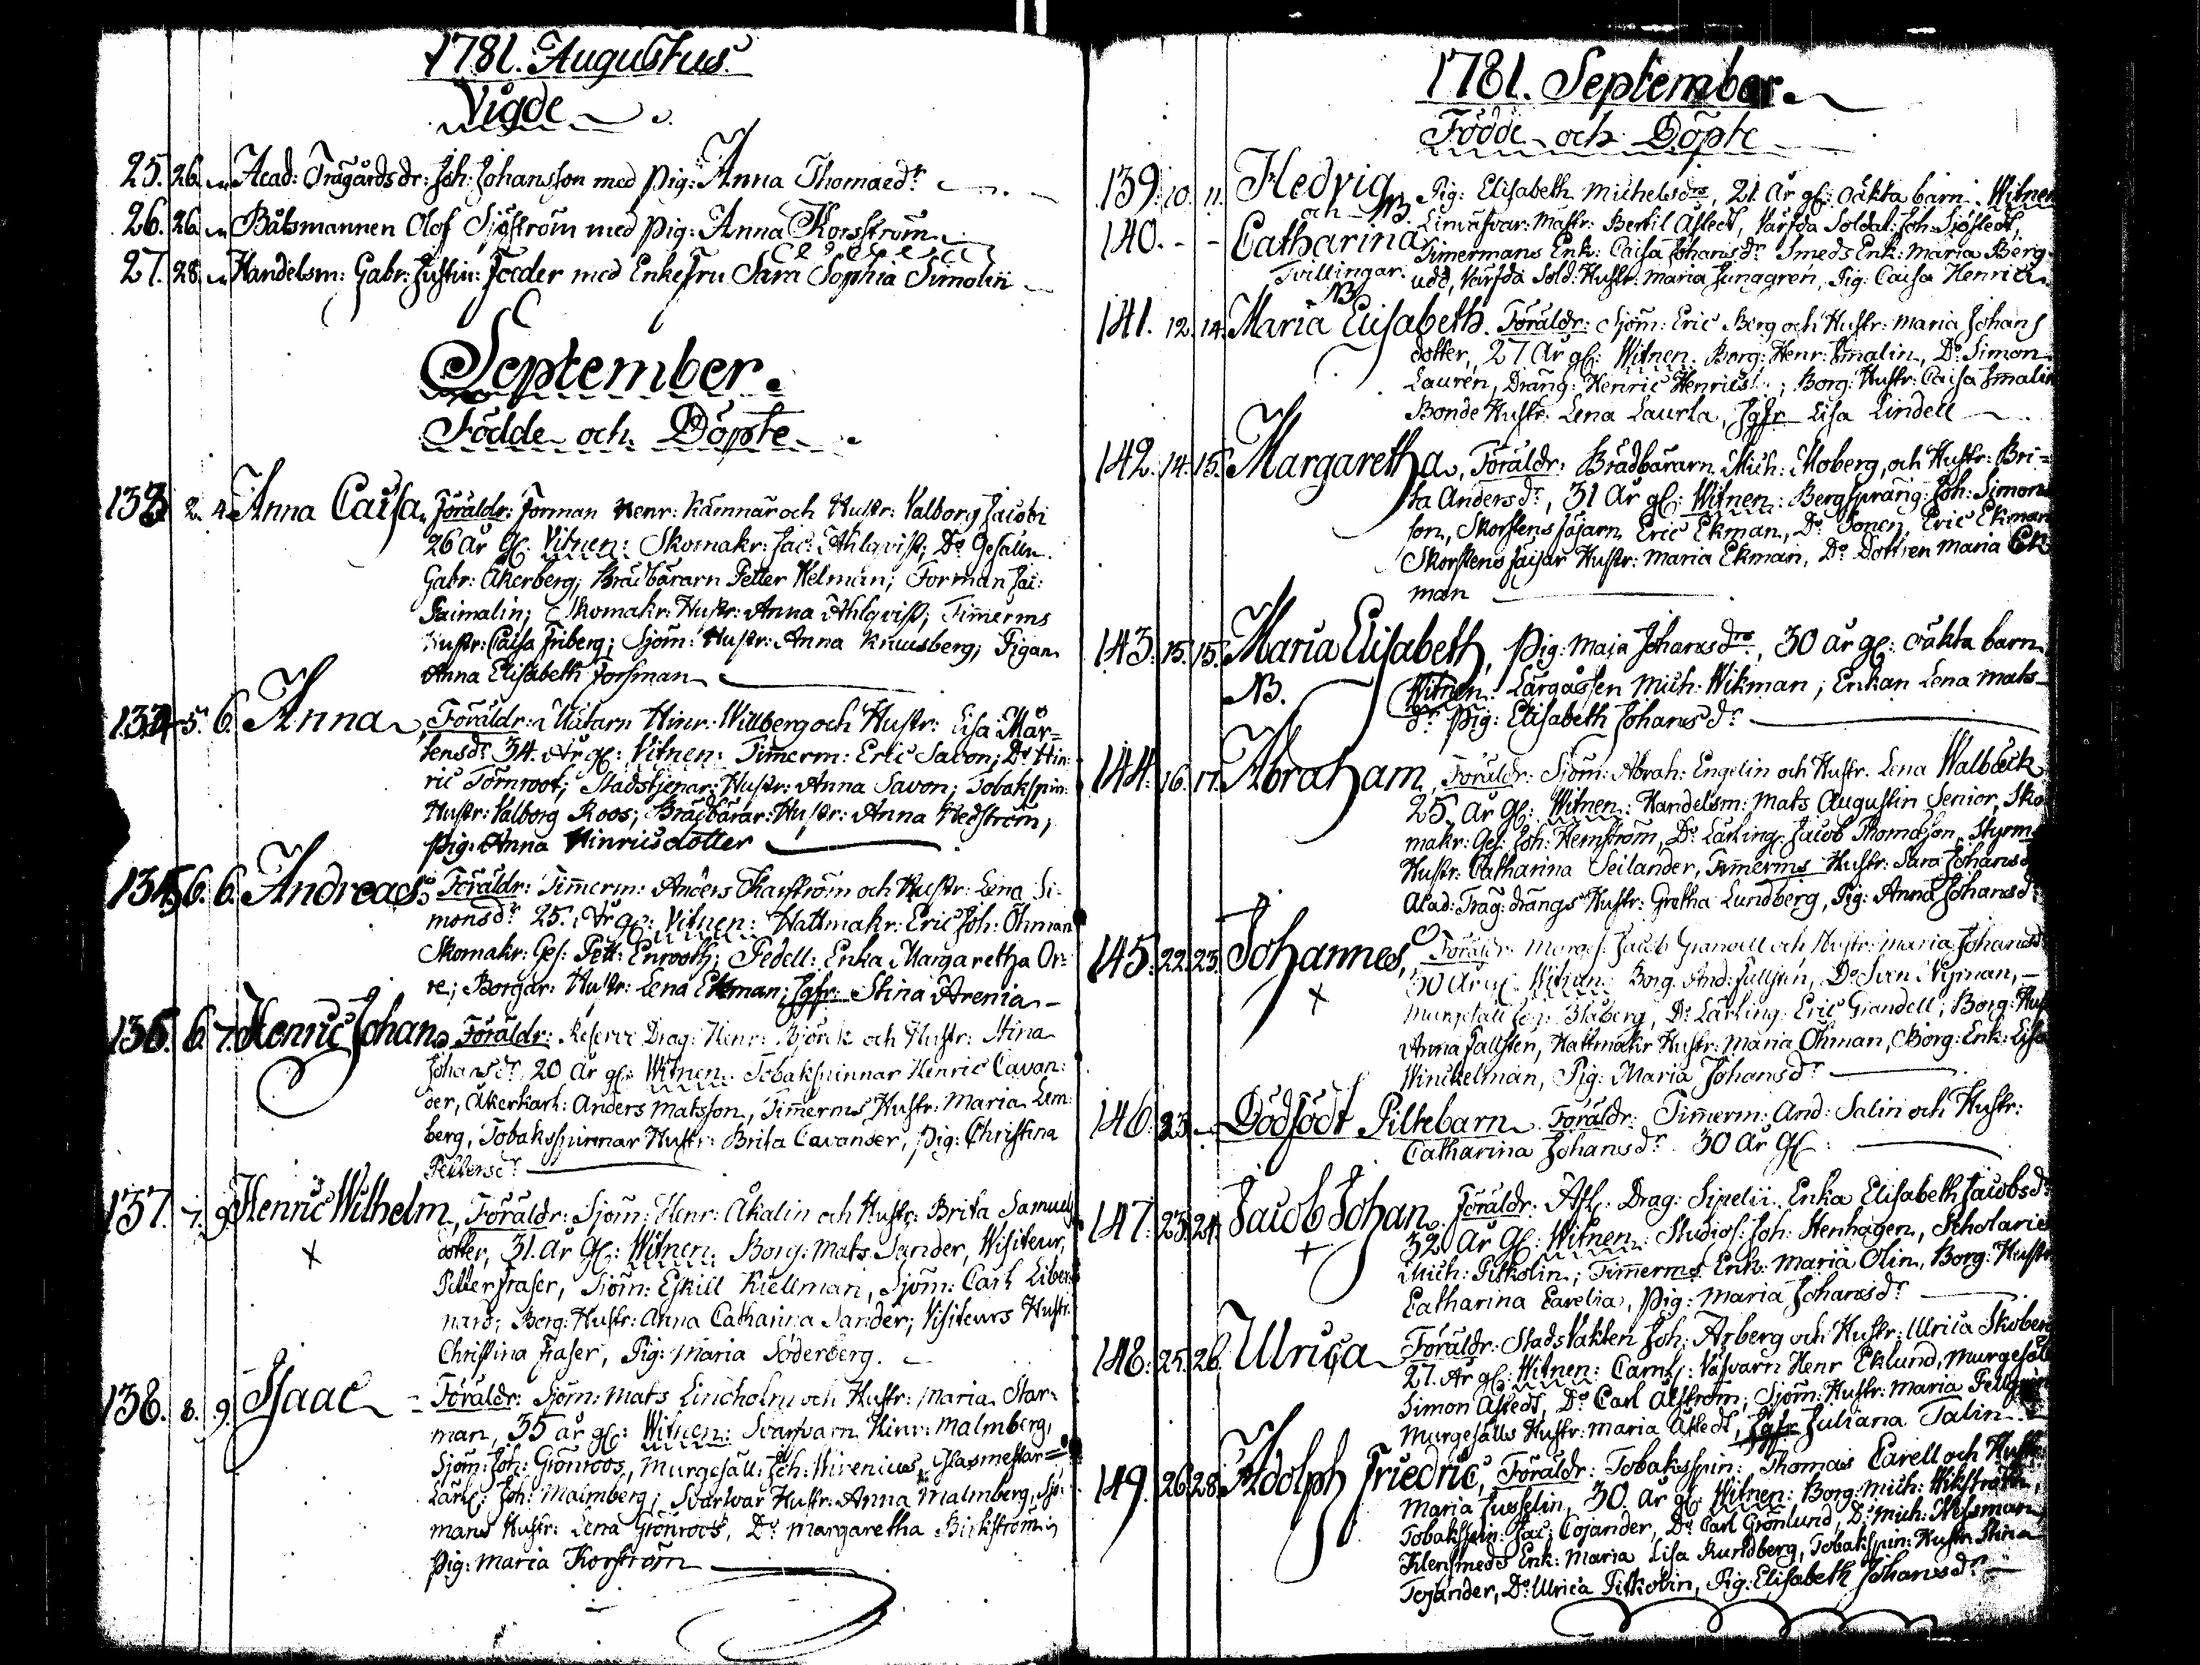 1781. Augustus.
Vigde
25. 26. Acad: Trägårds dr: Joh: Johansson med Pig: Anna Thomaedr
26. 26. Båtsmannen Olof Sjöström med Pig: Anna Korsström
27. 28. Handelsm: Gabr: Justin: Feeder med Enkefru Sara Sophia Simolin
September.
Födde och Döpte
133 2. 4. Anna Caisa, Föräldr: Forman Henr: Kämnär och Hustr: Valborg Jacobi
26 år gl: Vitnen: Skomakr: Jac: Ahlqvist; Do Gesälln
Gabr: Åkerberg; Brädbärarn Petter Helman; Forman Jac:
Saimalin; Skomakr: Hustr: Anna Ahlqvist; Timmerms
Hustr: Caisa Friberg; Sjöm: Hustr: Anna Knuusberg; Pigan
Anna Elisabeth Forsman
134 5. 6. Anna, Föräldr: Mätarn Hinr: Widberg och Hustr: Lisa Mår=
tensdr 34. År gl: Vitnen: Timmerm: Eric Savon; Do Hin-
ric Törnroot; Stadstjenar: Hustr: Anna Savon; Tobakspin:
Hustr: Valborg Roos; Brädbärar: Hustr: Anna Hedström;
Pig: Anna Hinricsdotter
135 6. 6. Andreas: Föräldr: Timmerm: Anders Skarström och Hustr: Lena Si-
monsdr 25. År gl: Vitnen: Hattmakr: Eric Joh: Öhman
Skomakr: Ges: Pett: Enrooth; Pedell: Enka Margaretha Or-
re; Borgar: Hustr: Lena Ekman; Jgfr: Stina Arenia
136. 6. 7. Henric Johan, Föräldr: Reserve Drag: Henr: Björck och Hustr: Stina
Johansdr 20 år gl: Witnen: Tobakspinnar Henric Cavan-
der, Åkerkarl: Anders Matsson, Timmerms Hustr: Maria Lem-
berg, Tobakspinnar Hustr: Brita Cavander, Pig: Christina
Pettersdr
137. 7. 9. Henric Wilhelm, Föräldr: Sjöm: Henr: Åkalin och Hustr: Brita Samuels
X dotter, 31. År gl: Witnen: Borg: Mats Sander, Visiteur,
Petter Fraser, Sjöm: Eskill Kiellman, Sjöm: Carl Liber-
nard; Borg: Hustr: Anna Catharina Sander; Visiteurs Hustr:
Christina Fraser, Pig: Maria Söderberg.
138. 8. 9. Isaac Föräldr: Sjöm: Mats Lincholm och Hustr: Maria Star-
man, 35 år gl: Witnen: Svarvarn Hinr: Malmberg,
Sjöm: Joh: Grönroos, Murgesäll: Joh: Wirenius, Glasmestar
Lärl: Joh: Malmberg; Svarvar Hustr: Anna Malmberg, Sjö-
mans Hustr: Lena Grönroos, Do Margaretha Birkström
Pig: Maria Korström
1781. September.
Födde och Döpte
139. 10. 11. Hedvig Pig: Elisabeth Michelsdrs, 21 År gl: oäkta barn. Witnen
och NB. Linväfvar: Mastr: Bertil Åstedt, Värfda Soldat: Joh: Sjöstedt,
140. - - Catharina, Timermans Enk: Caisa Johansdr Smeds Enk: Maria Berg-
Tvillingar. udd, Värfda Sold: Hustr: Maria Junggren, Pig: Caisa Henrics
NB
141. 12. 14. Maria Elisabeth. Föräldr: Sjöm: Eric Berg och Hustr: Maria Johans
dotter, 27 År gl: Witnen. Borg: Henr: Smalin, Do Simon
Lauren, Dräng: Henric Henrics; Borg: Hustr: Caisa Smalin
Bonde Hustr: Lena Laurla, Jgfr Lisa Lindell
142. 14. 15. Margaretha, Föräldr: Brädbärarn Mich: Moberg, och Hustr: Bri=
ta Andersdr, 31 År gl: Witnen: Bergspräng: Joh: Simons
son, Skorstens fajarn Eric Ekman, Do Sonen Eric Ekman
Skorstens faijar Hustr: Maria Ekman, Do Dottren Maria Ek
man
143. 15. 15. Maria Elisabeth, Pig: Maja Johansdrs, 30 år gl: oäkta barn
NB. Witnen: Lärgossen Mich: Wikman; Enkan Lena Mats-
dr Pig: Elisabeth Johansdr
144. 16. 17. Abraham, Föräldr: Sjöm: Abrah: Engelin och Hustr. Lena Walbeck
25. År gl: Witnen: Handelsm: Mats Augustin Senior, Sko
makr: Ges: Joh: Hemström, Do Lärling: Jacob Thomasson, Styrms
Hustr: Catharina Seilander, Timmerms Hustr: Sara Johansd
Acad: Träg: drängs Hustr: Gretha Lundberg, Pig: Anna Johansdr
145. 22. 23. Johannes, Föräldr: Murges: Jacob Grandell och Hustr: Maria Johansd
X 30 År gl: Witnen: Borg: And: Fallsten, Do Sven Nyman,
Murgesäll Joh: Blåberg, Do Lärling: Eric Grandell; Borg: Hus
Anna Fallsten, Hattmakr Hustr: Maria Öhman, Borg: Enk: Lisa
Winckelman, Pig: Maria Johansdr
146. 23. - Dödfödt Piltebarn. Föräldr: Timmerm: And: Salin och Hustr:
Catharina Johansdr 30 År gl:
147. 23. 24. Jacob Johan. Föräldr: Afl: Drag: Sipelii Enka Elisabeth Jacobsdr
+ 32 År gl: Witnen: Studios: Joh: Stenhagen, Scholaris
Mich: Pitkolin; Timmerms Enk: Maria Olin, Borg: Hustr
Catharina Carelia, Pig: Maria Johansdr
148. 25. 26. Ulrica Föräldr: StadsVakten Joh: Arberg och Hustr: Ulrica Skoberg
27. År gl: Witnen: Caml: Väfvarn Henr Eklund, Murgesäll
Simon Åstedt, Do Carl Alström; Sjöm: Hustr: Maria Fellgren
Murgesälls Hustr: Maria Åstedt, Jgfr Juliana Talin
149. 26. 28. Adolph Friedric, Föräldr: Tobaksspin: Thomas Carell och Hustr
Maria Jusselin, 30. År gl: Witnen: Borg: Mich: Wikström,
Tobakspin: Jac: Cojander, Do Carl Grönlund, Do Mich: Wessman
Klensmeds Enk: Maria Lisa Rundberg, Tobakspin: Hustr: Stina
Cojander, Do Ulrica Pitkolin, Pig: Elisabeth Johansdr